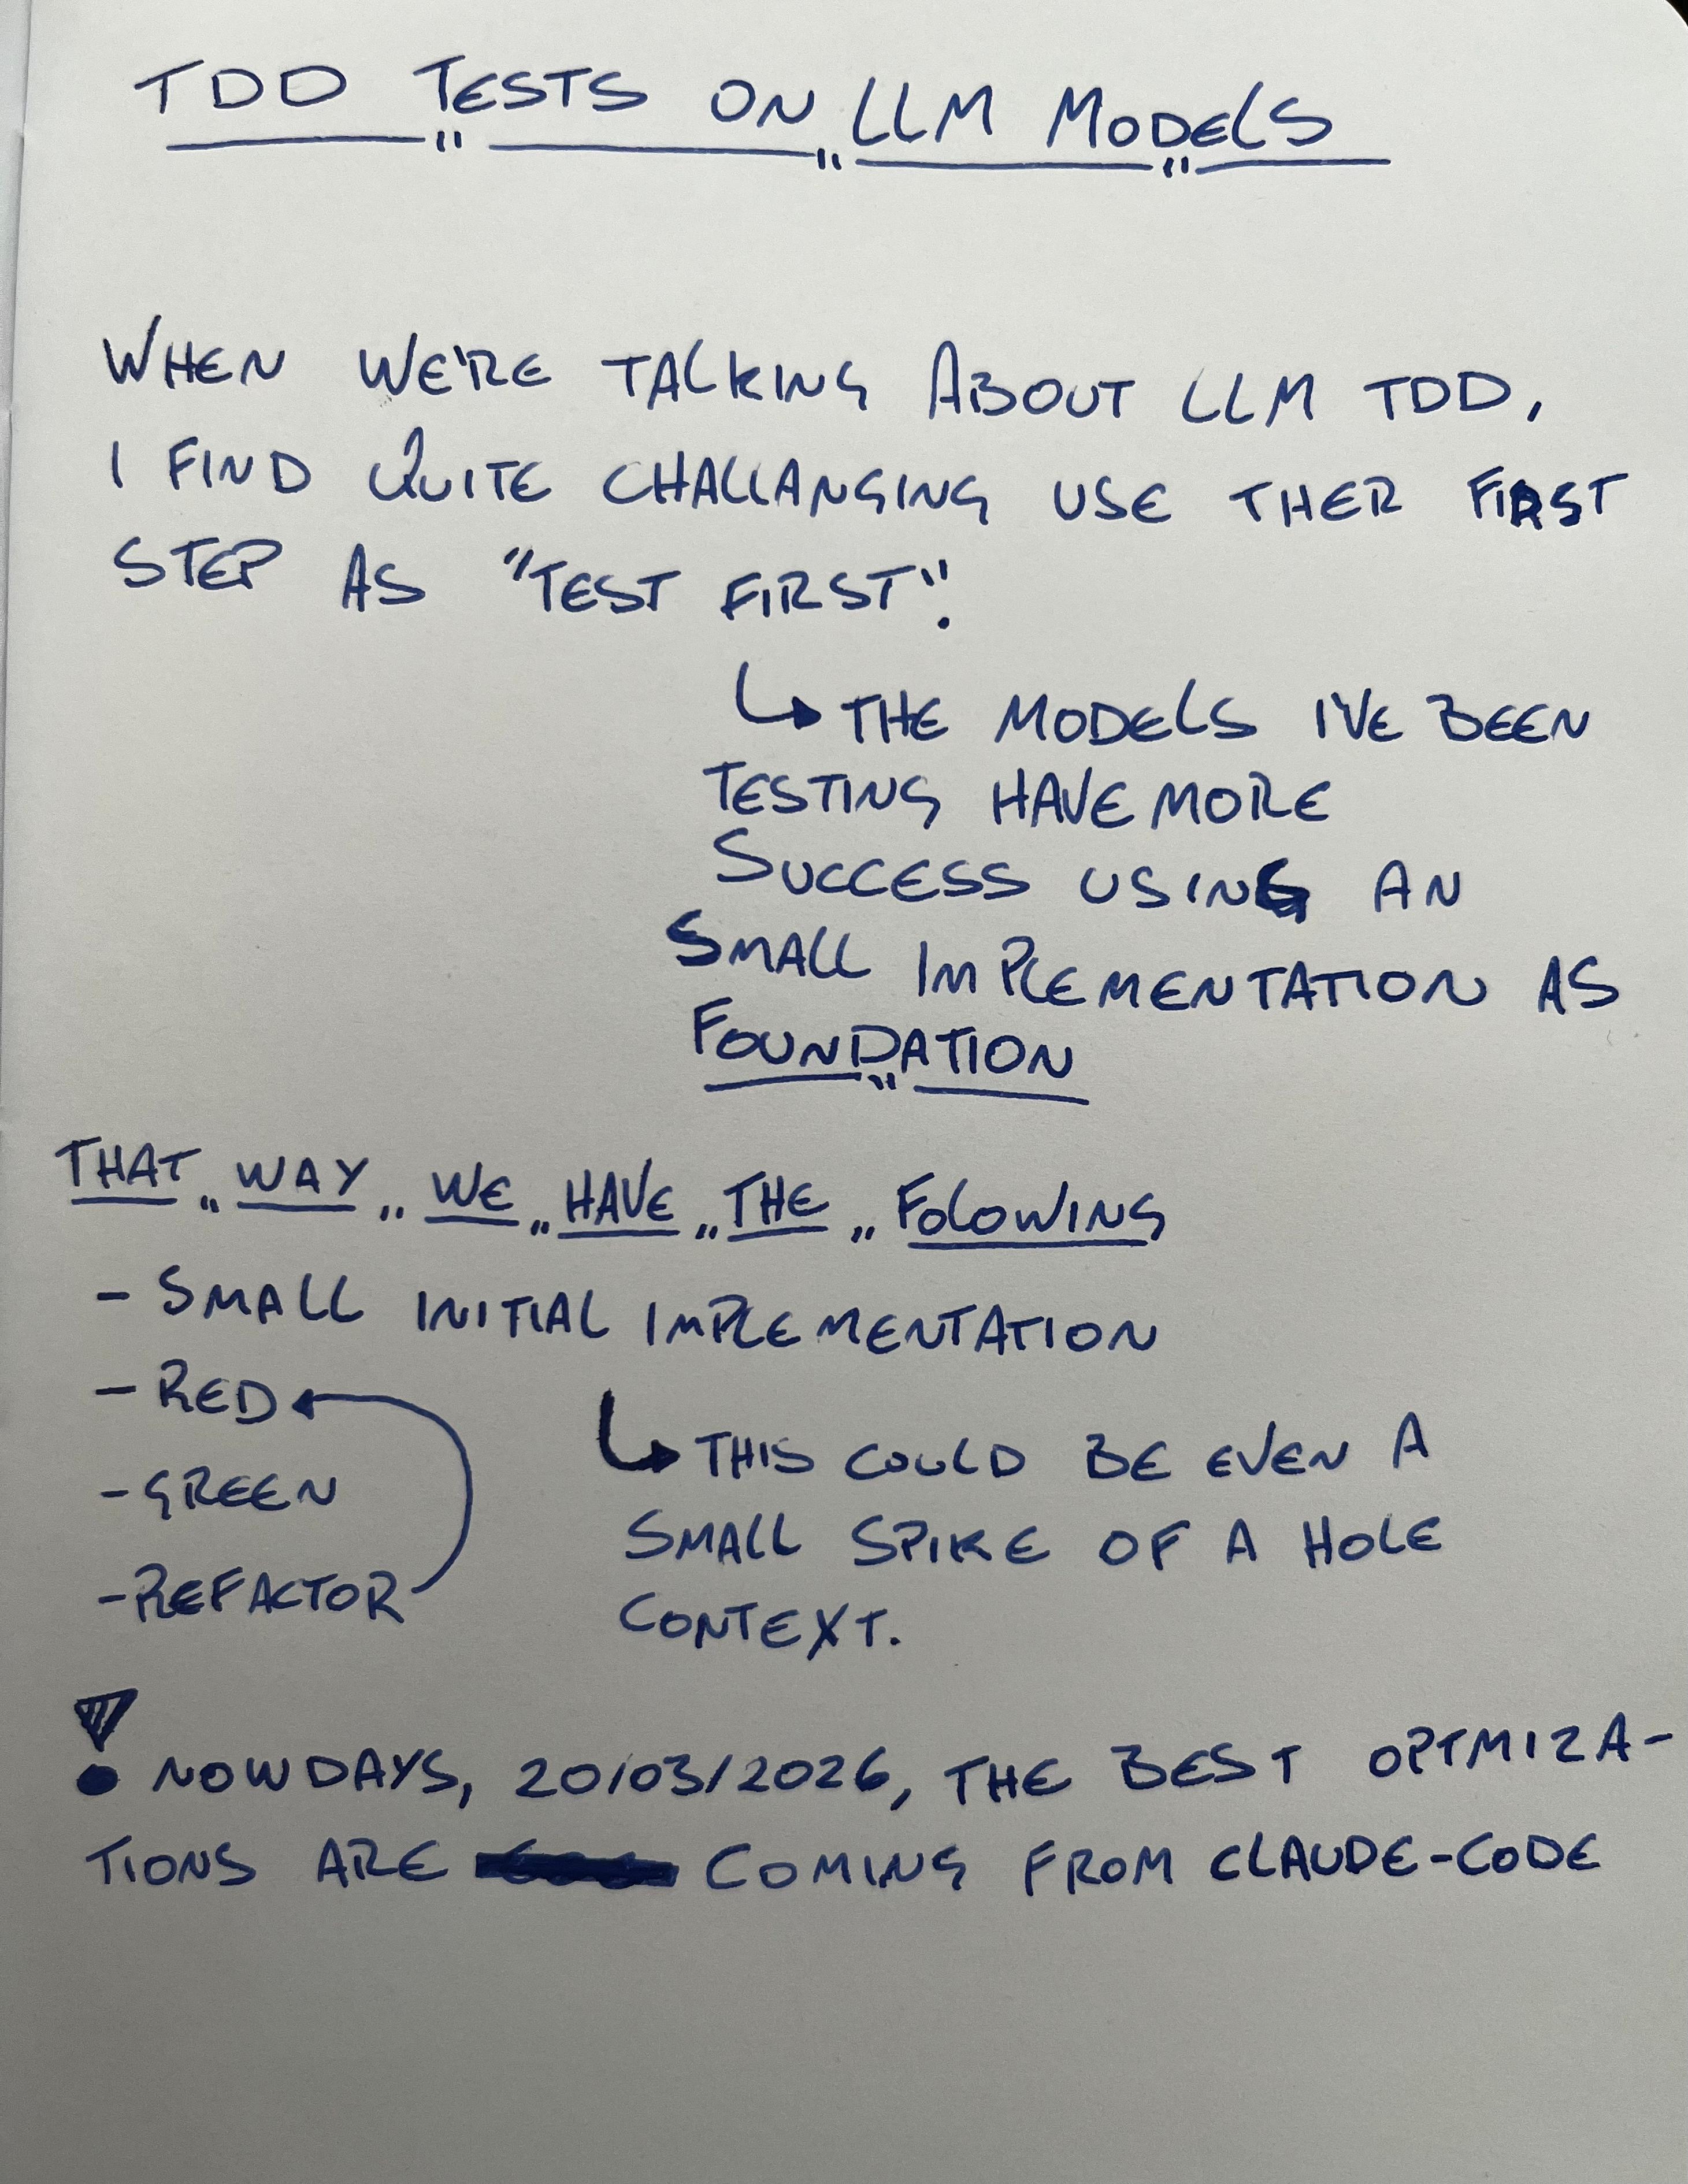 TDD TESTS ON LLM MODELS
WHEN WE'RE TALKING ABOUT LLM TDD,
I FIND QUITE CHALLANGING USE THER FIRST
STEP AS "TEST FIRST".
THE MODELS I'VE BEEN
TESTING HAVE MORE
SUCCESS USING AN
SMALL IMPLEMENTATION AS
FOUNDATION
THAT WAY WE HAVE THE FOLOWING
- SMALL INITIAL IMPLEMENTATION
- RED
- GREEN
- REFACTOR
THIS COULD BE EVEN A
SMALL SPIKE OF A HOLE
CONTEXT.
! NOWDAYS, 20/03/2026, THE BEST OPTMIZA-
TIONS ARE COMING FROM CLAUDE-CODE